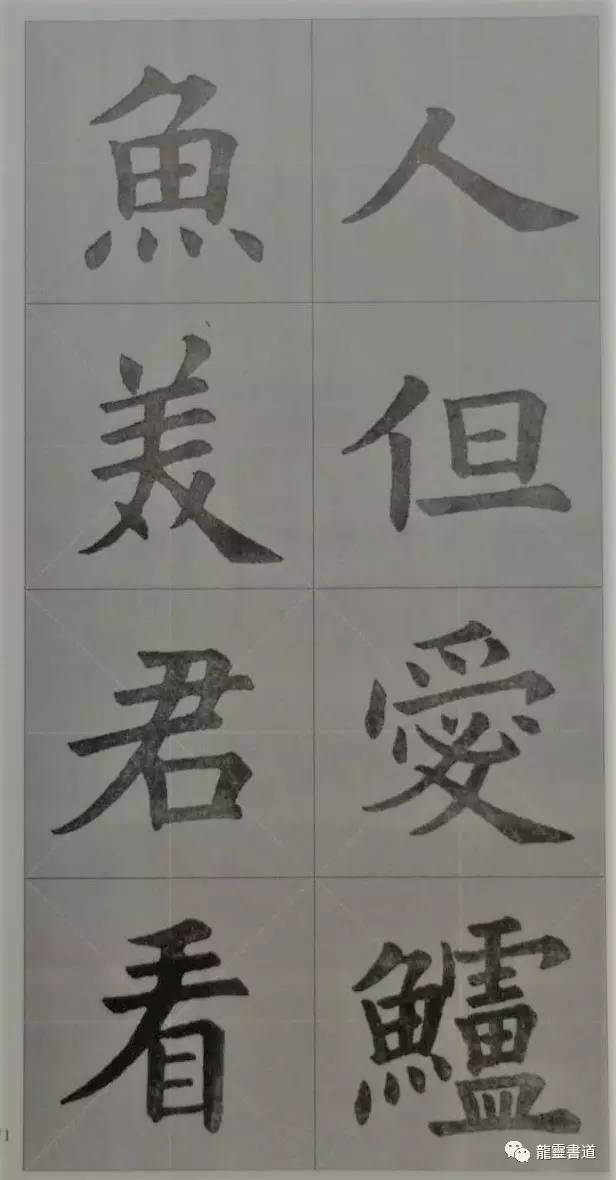 人但愛鱸
魚美君看
71
龍靈書道